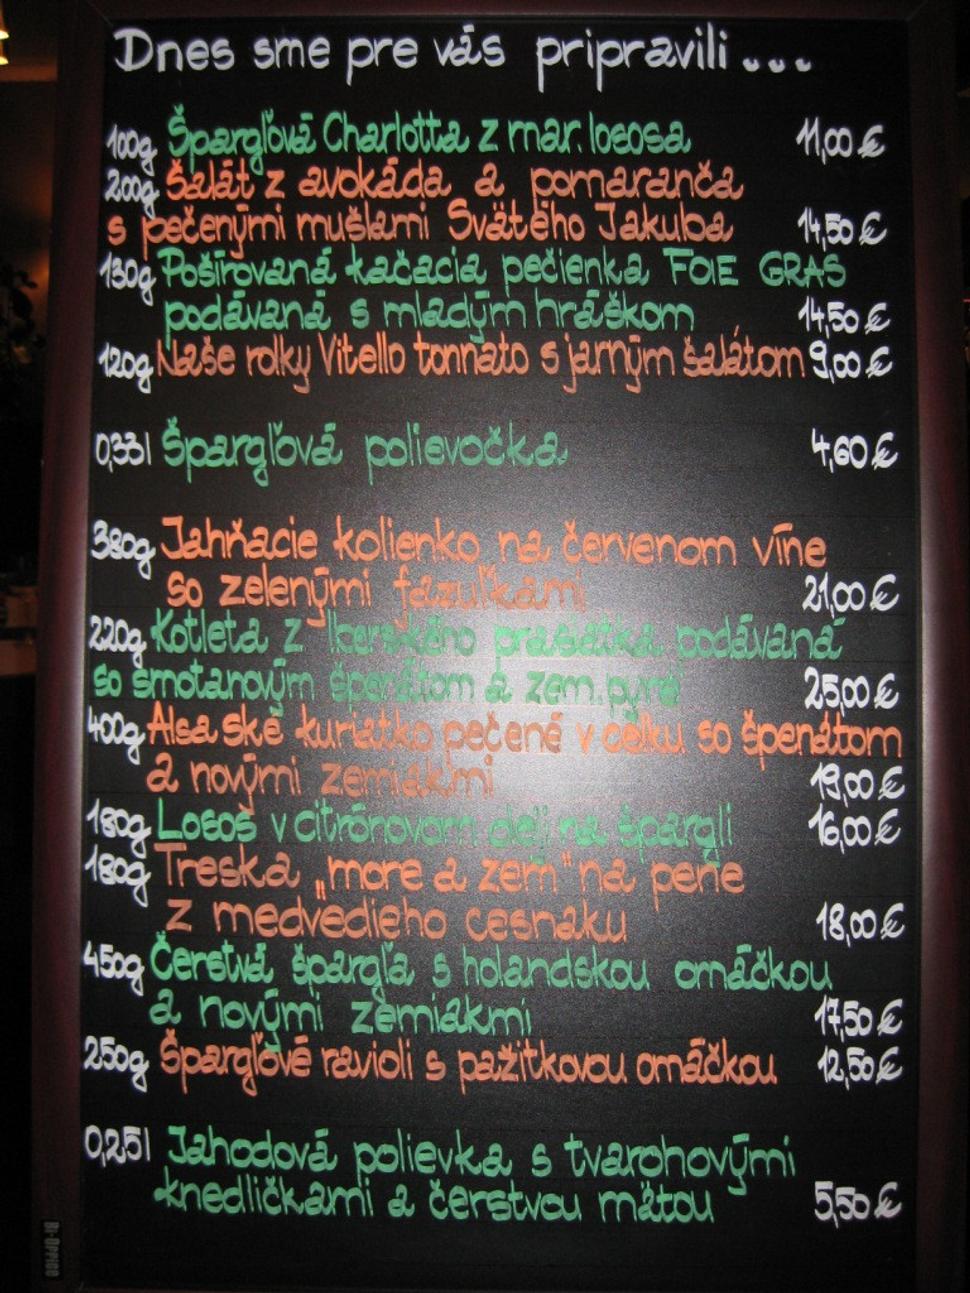 Dnes sme pre vás pripravili...
100g Špargľová Charlotta z mar. lososa 11,00 €
200g Šalát z avokáda a pomaranča
s pečenými mušlami Svätého Jakuba 14,50 €
130g Poširovaná kačacia pečienka FOIE GRAS
podávaná s mladým hráškom 14,50 €
120g Naše rolky Vitello tonnato s jarným šalátom 9,00 €
0,33l Špargľová polievočka 4,60 €
380g Jahňacie kolienko na červenom víne
so zelenými fazuľkami 21,00 €
220g Kotleta z Iberského prasiatka podávaná
so smotanovým špenátom a zem. pyré 25,00 €
400g Alsaské kuriatko pečené v celku so špenátom
a novými zemiakmi 19,00 €
180g Losos v citrónovom oleji na špargli 16,00 €
180g Treska „more a zem" na pene
z medvedieho cesnaku 18,00 €
450g Čerstvá špargľa s holandskou omáčkou
a novými zemiakmi 17,50 €
250g Špargľové ravioli s pažitkovou omáčkou 12,50 €
0,25l Jahodová polievka s tvarohovými
knedličkami a čerstvou mätou 5,50 €
Bi-Office